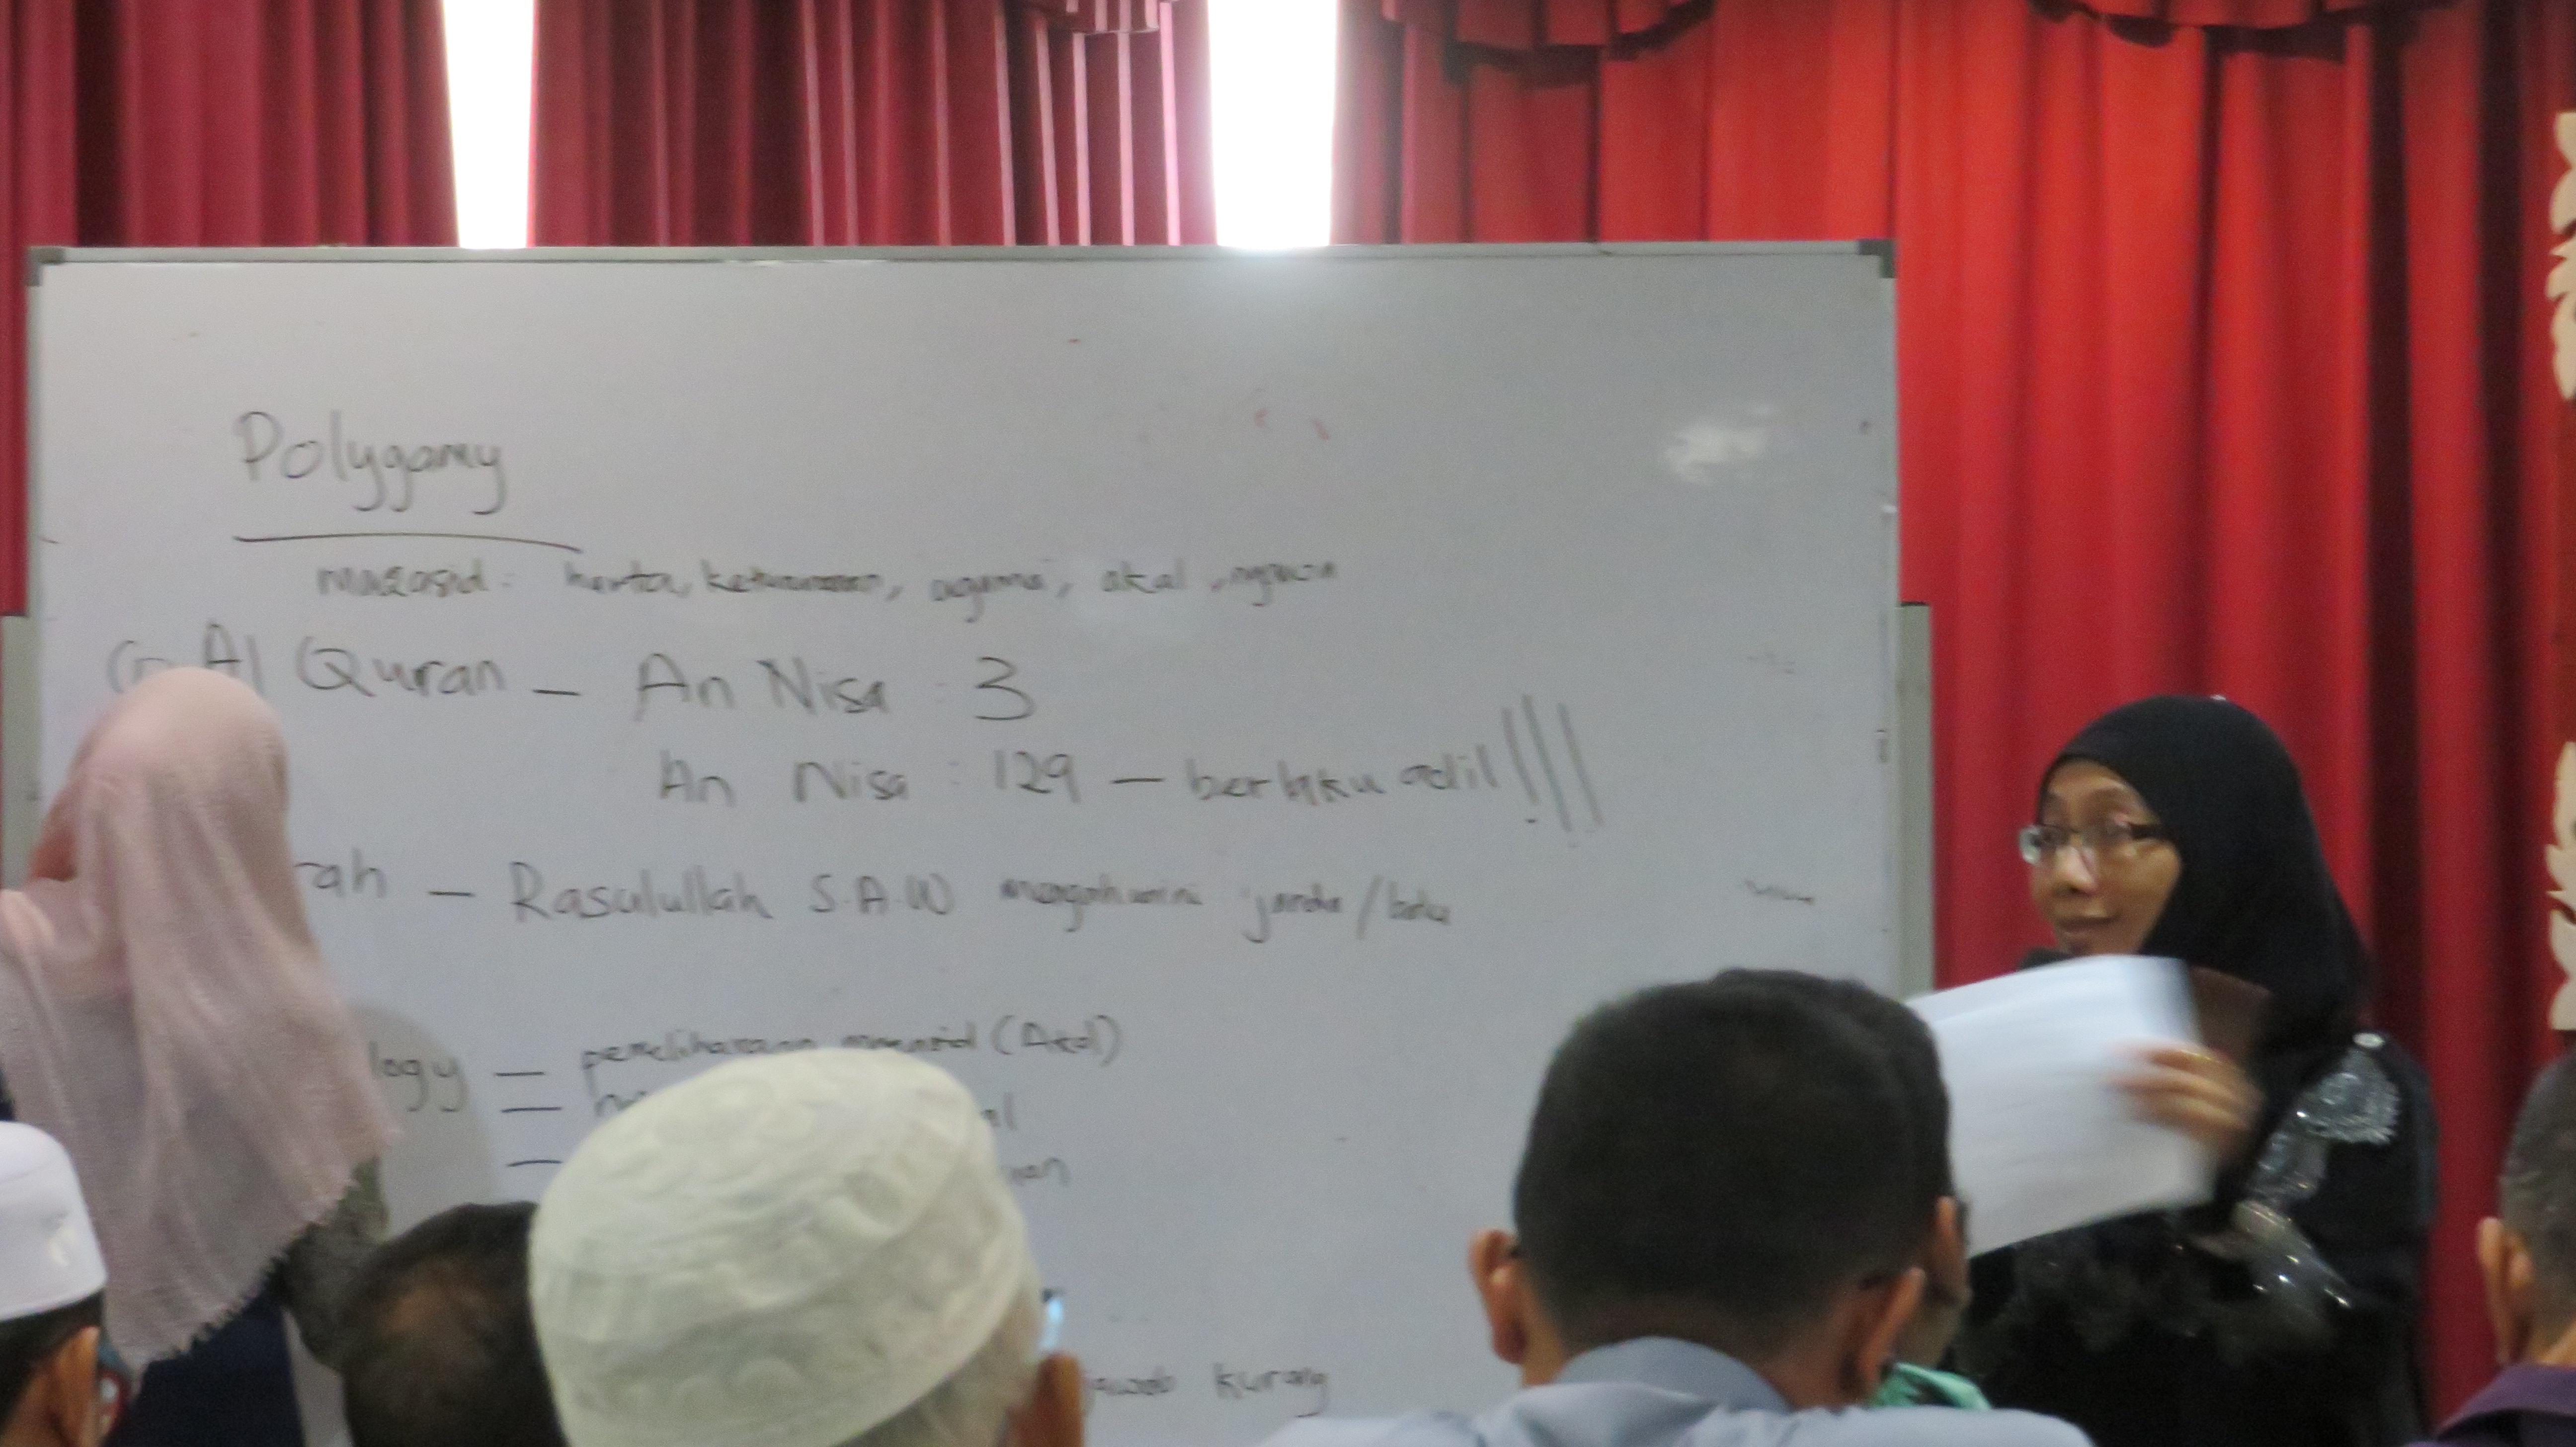 Polygamy
maqasid : harta, keturunan, agama, akal, nyawa
Al Quran - An Nisa : 3
An Nisa : 129 - berlaku adil !!!
rah - Rasulullah S.A.W mengahwini janda / balu
logy - pemeliharaan maqasid (Akal)
-
-
jawab kurang